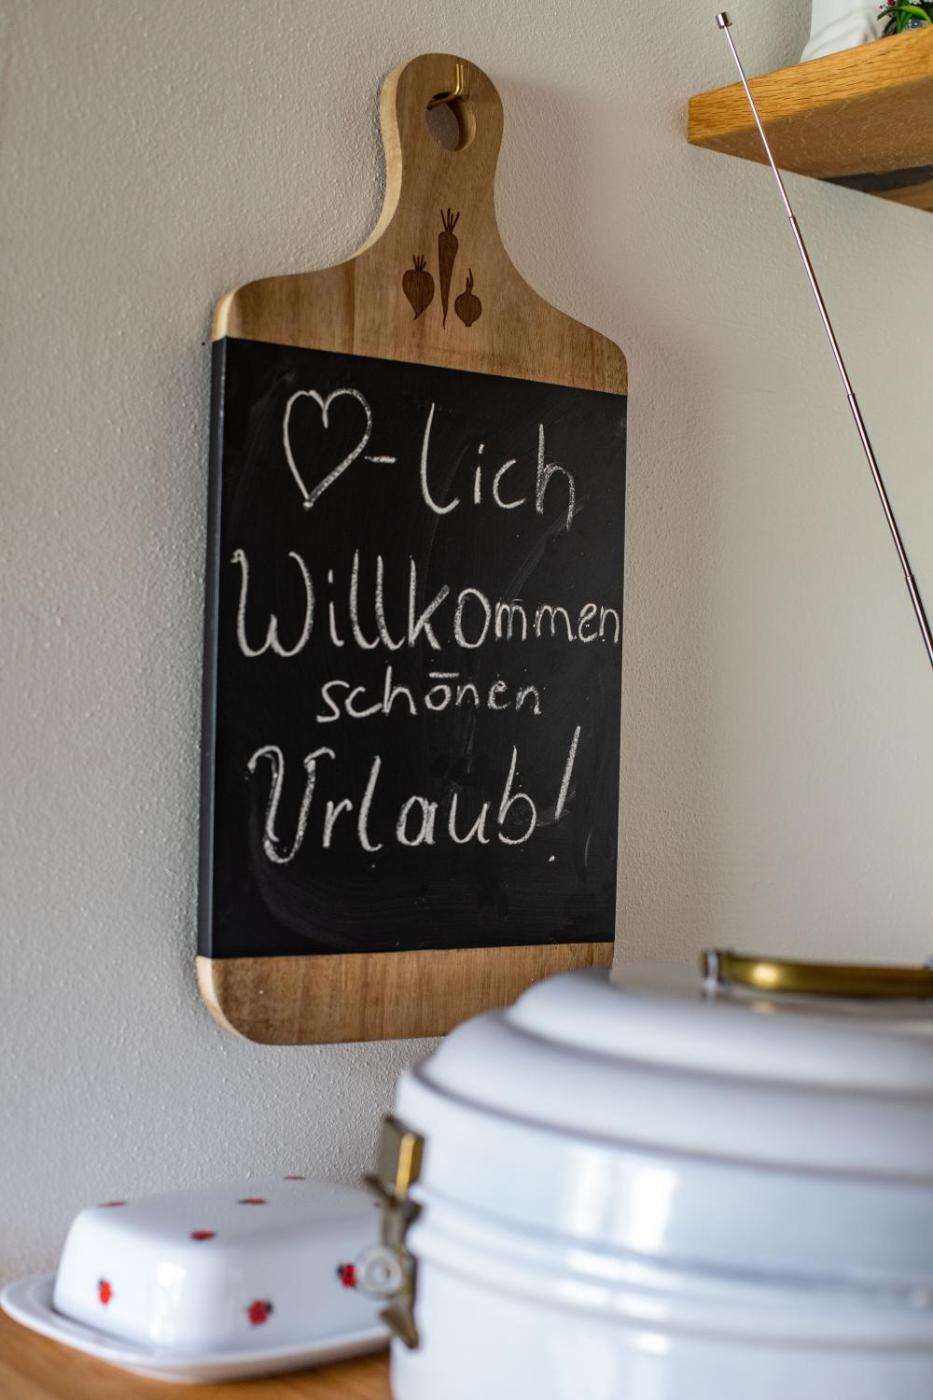 ♡-lich
Willkommen
schönen
Urlaub!